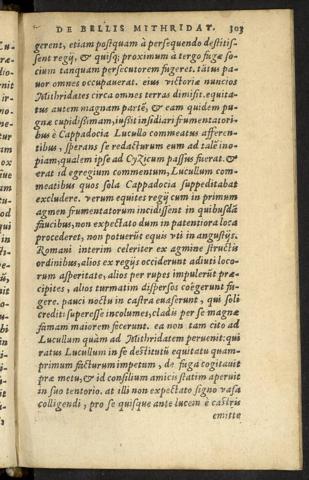 DE BELLIS MITHRIDAT. 303
gerent, etiam postquàm à persequendo destitis-
sent regij, & quisq; proximum a tergo fugæ so-
cium tanquam persecutorem fugeret. tātus pa-
uor omnes occupauerat. eius victoriæ nuncios
Mithridates circa omnes terras dimisit. equita-
tus autem magnam partē, & eam quidem pu-
gnæ cupidissimam, iußit insidiari frumentatori-
bus è Cappadocia Lucullo commeatus afferen-
tibus, sperans se redacturum eum ad talē ino-
piam, qualem ipse ad Cyzicum passus fuerat. &
erat id egregium commentum, Lucullum com-
meatibus quos sola Cappadocia suppeditabat
excludere. verum equites regij cum in primum
agmen frumentatorum incidissent in quibusdā
faucibus, non expectato dum in patentiora loca
procederet, non poterūt equis vti in angustijs.
Romani interim celeriter ex agmine structis
ordinibus, alios ex regijs occiderunt adiuti loco-
rum asperitate, alios per rupes impulerūt præ-
cipites, alios turmatim dispersos coëgerunt fu-
gere. pauci noctu in castra euaserunt, qui soli
credit: superesse incolumes, cladis per se magnæ
famam maiorem fecerunt. ea non tam cito ad
Lucullum quàm ad Mithridatem peruenit: qui
ratus Lucullum in se destitutū equitatu quam-
primum facturum impetum, de fuga cogitauit
præ metu, & id consilium amicis statim aperuit
in suo tentorio. at illi non expectato signo vasa
colligendi, pro se quisque ante lucem è castris
emitte